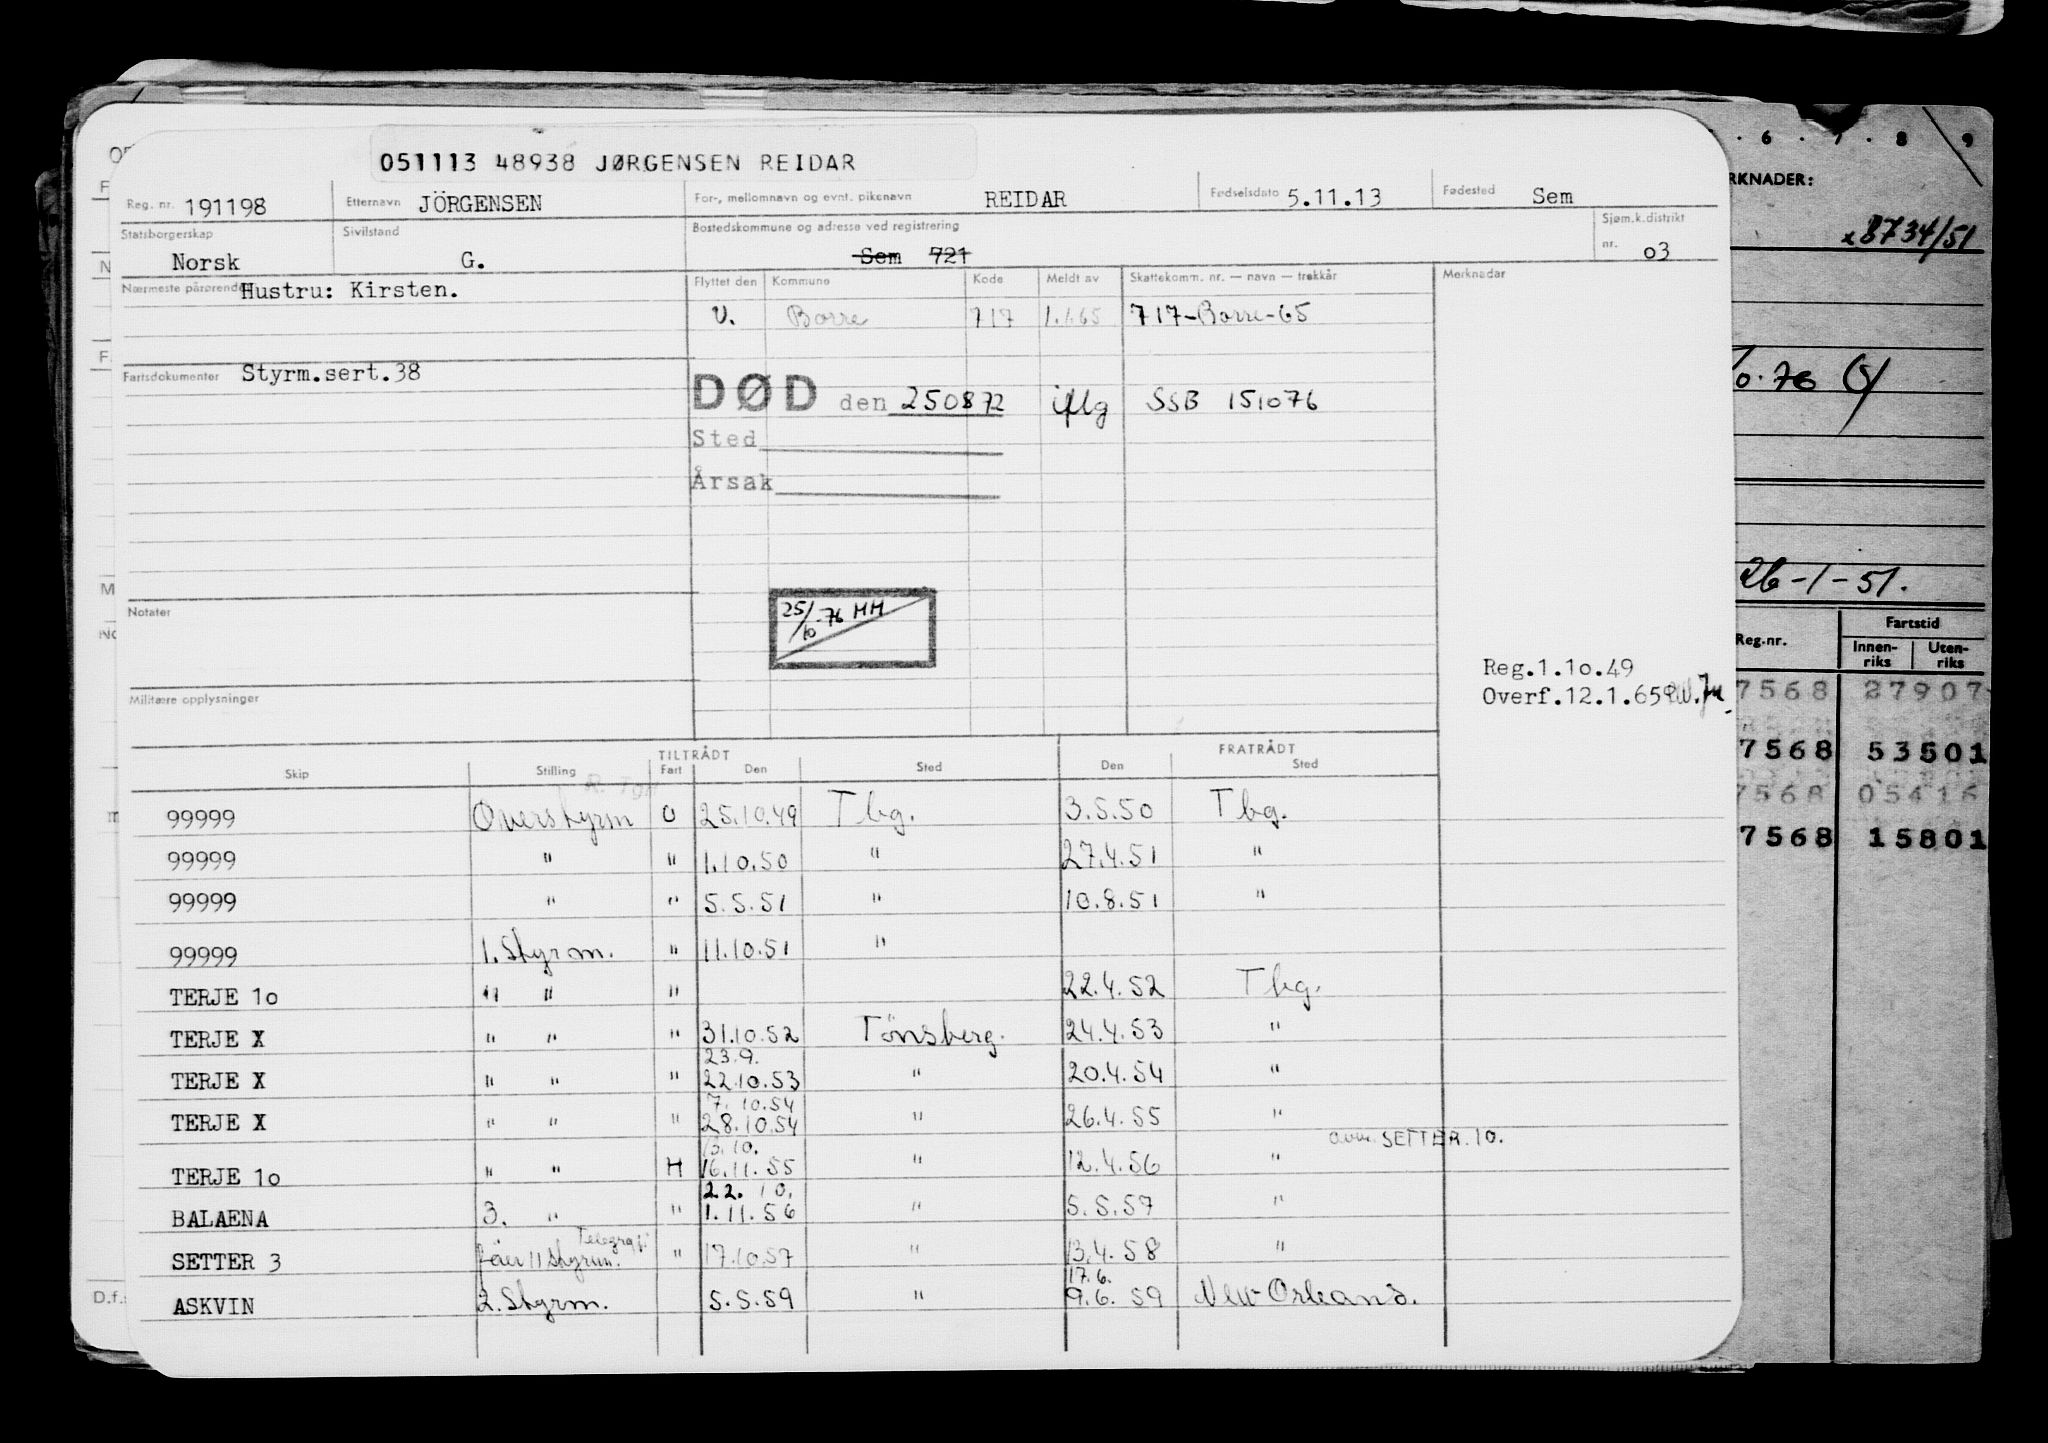 051113 48938 JØRGENSEN REIDAR
Reg. nr. 191198 Etternavn JÖRGENSEN For-, mellomnavn og evnt. pikenavn REIDAR Fødselsdato 5.11.13 Fødested Sem
Statsborgerskap Norsk Sivilstand G. Bostedskommune og adresse ved registrering Sem 721 Sjøm.k.distrikt nr. o3
Nærmeste pårørende Hustru: Kirsten. Flyttet den Kommune Kode Meldt av Skattekomm. nr. — navn — trekkår Merknader
U. Borre 717 1.1.65 717-Borre-65
Fartsdokumenter Styrm.sert.38
DØD den 250872 iflg SSB 151076
Sted
Årsak
25/10-76 HH
Notater
Reg.1.1o.49
Overf.12.1.65
Militære opplysninger
TILTRÅDT FRATRÅDT
Skip Stilling Fart Den Sted Den Sted
99999 Overstyrm U 25.10.49 Tbg. 3.5.50 Tbg.
99999 " " 1.10.50 " 27.4.51 "
99999 " " 5.5.51 " 10.8.51 "
99999 1. Styrm. " 11.10.51 "
TERJE 1o " " " 22.4.52 Tbg.
TERJE X " " " 31.10.52 Tönsberg. 24.4.53 "
23.9.
TERJE X " " " 22.10.53 " 20.4.54 "
7. 10.54
TERJE X " " " 28.10.54 " 26.4.55 "
13.10. SETTER.10.
TERJE 1o " " H 16.11.55 " 12.4.56 "
22. 10.
BALAENA 3. " " 1.11.56 " 5.5.57 "
Telegraf
SETTER 3 Styrm. " 17.10.57 " 13.4.58 "
17.6.
ASKVIN 2. Styrm. 5.5.59 " 9.6.59 New Orleans.
6 . 7 . 8 . 9
RKNADER:
x8734/51
26-1-51.
Reg.nr. Fartstid
Innen-riks Uten-riks
7568 27907
7568 53501
7568 05416
7568 15801
D.f.